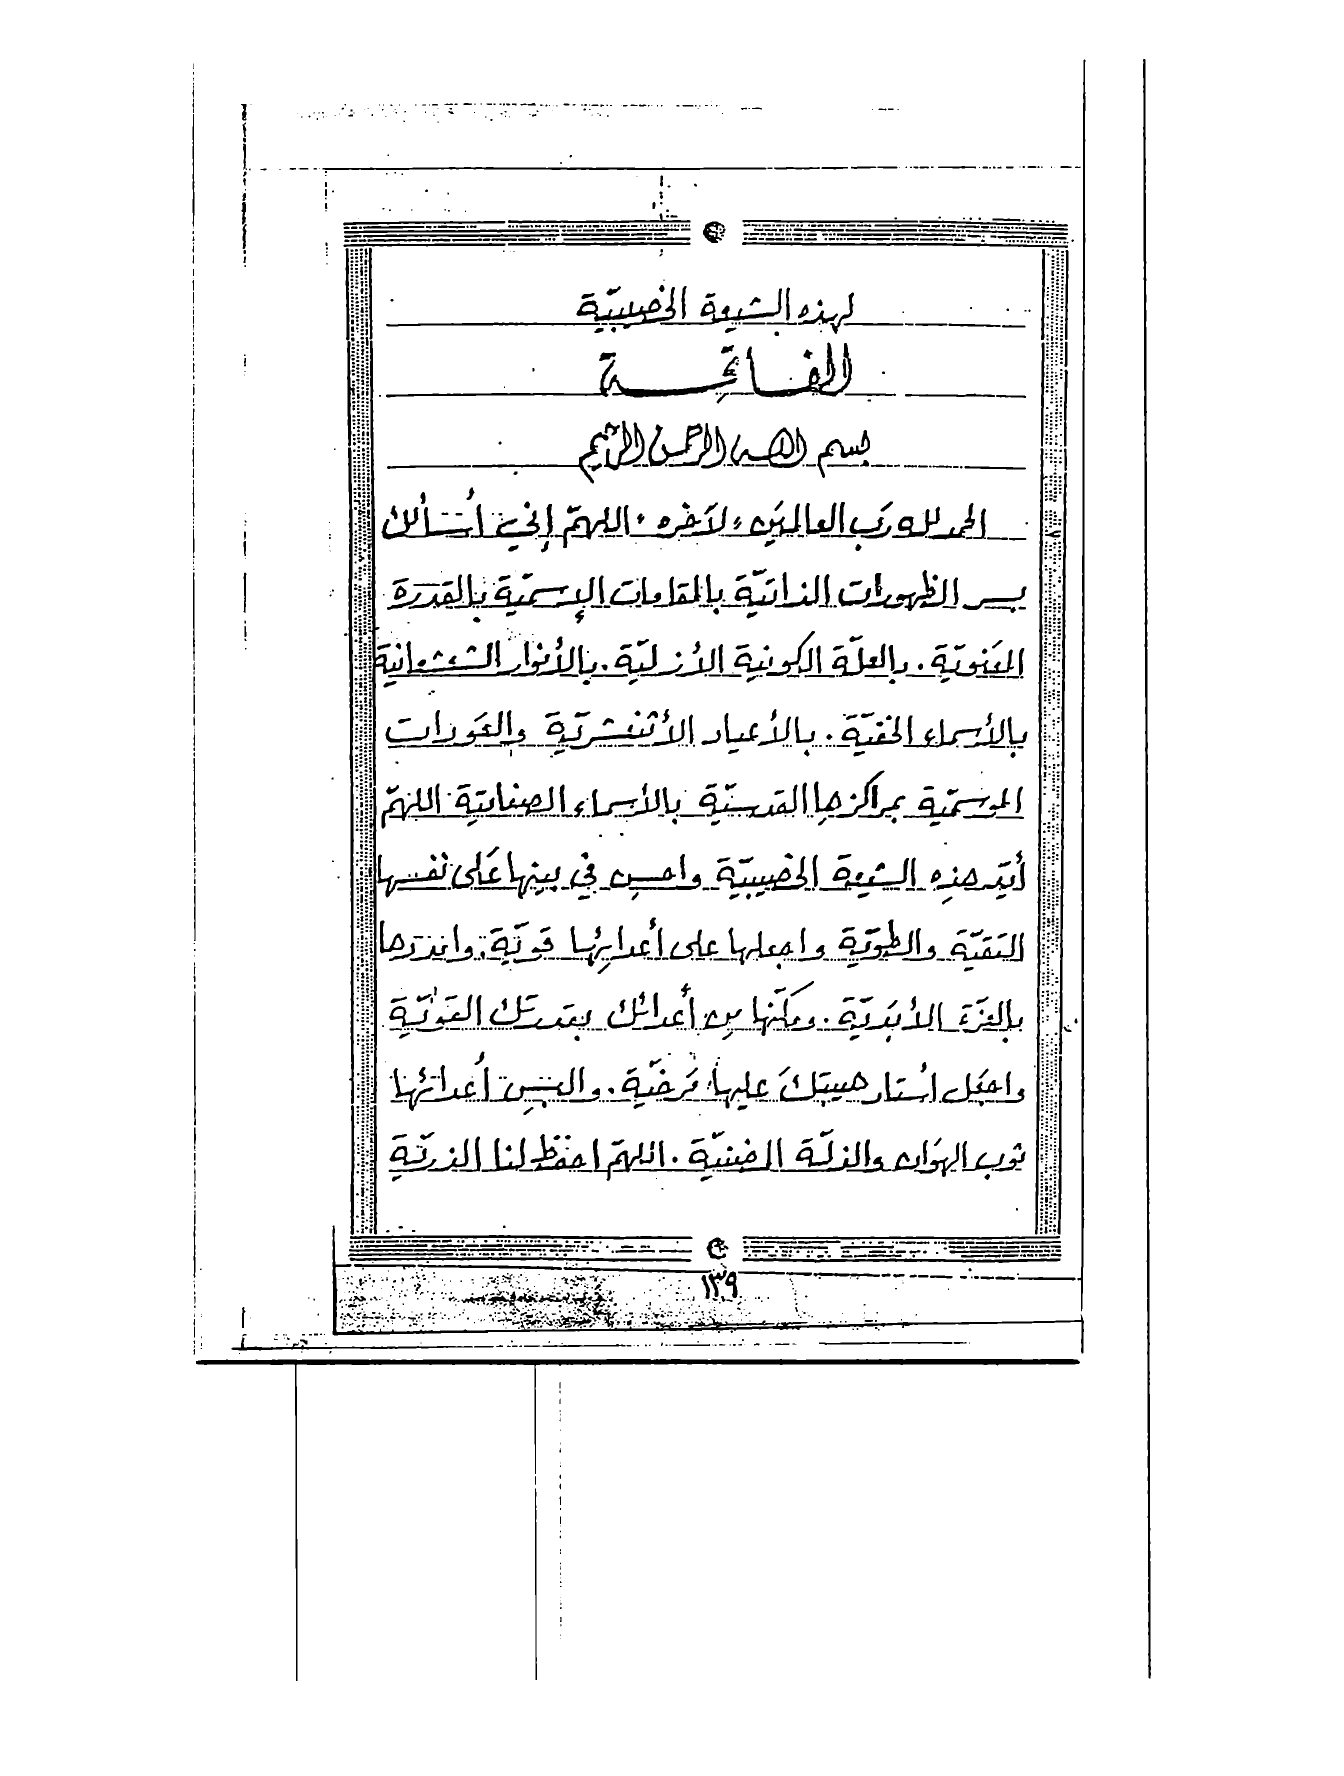 لهذه الشيعة الخصيبيّة
الفاتحة
بسم الله الرحمن الرحيم
الحمد لله رَب العالمَين، لآخره، اللهمّ إني أسألك
بسر الظهورات الذاتيّة بالمقامات الإسميّة بالقدرَة
المعَنويّة. بالعلّة الكونية الأزليّة. بالأنوار الشعشعانية
بالأسماء الخفيّة. بالأعياد الأثنعشريّة والعَورات
الموسميّة بمراكزها القدسيّة بالأسماء الصفاتية اللهمّ
أيّد هذِه الشيعة الخصيبيّة واحسِن في بينها عَلى نفسها
التقيّة والطويّة واجعلها على أعدائِها قويّة. وانذرها
بالعزّة الأبَديّة. ومكّنها مِن أعدائك بقدرتك القَويّة
واجعَل أستار هيبتكَ عليها مَرخيّة. والبسِ أعدائها
ثوب الهوَان والذلّة المضنيّة. اللهمّ احفظ لنا الذريّة
١٣٩